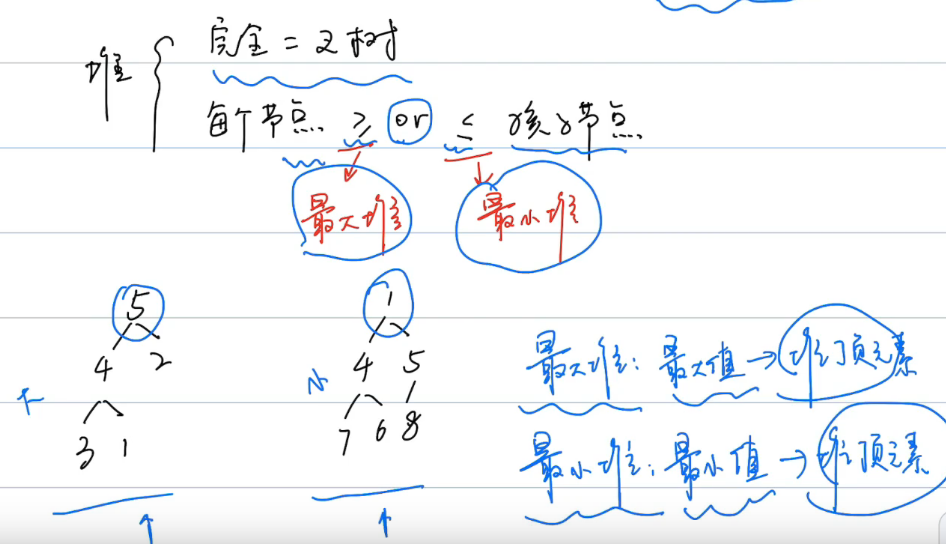 堆
完全二叉树
每个节点 ≥ or ≤ 孩子节点
最大堆 最小堆
5 1
4 2 4 5
大 小
3 1 7 6 8
最大堆：最大值→堆顶元素
最小堆：最小值→堆顶元素